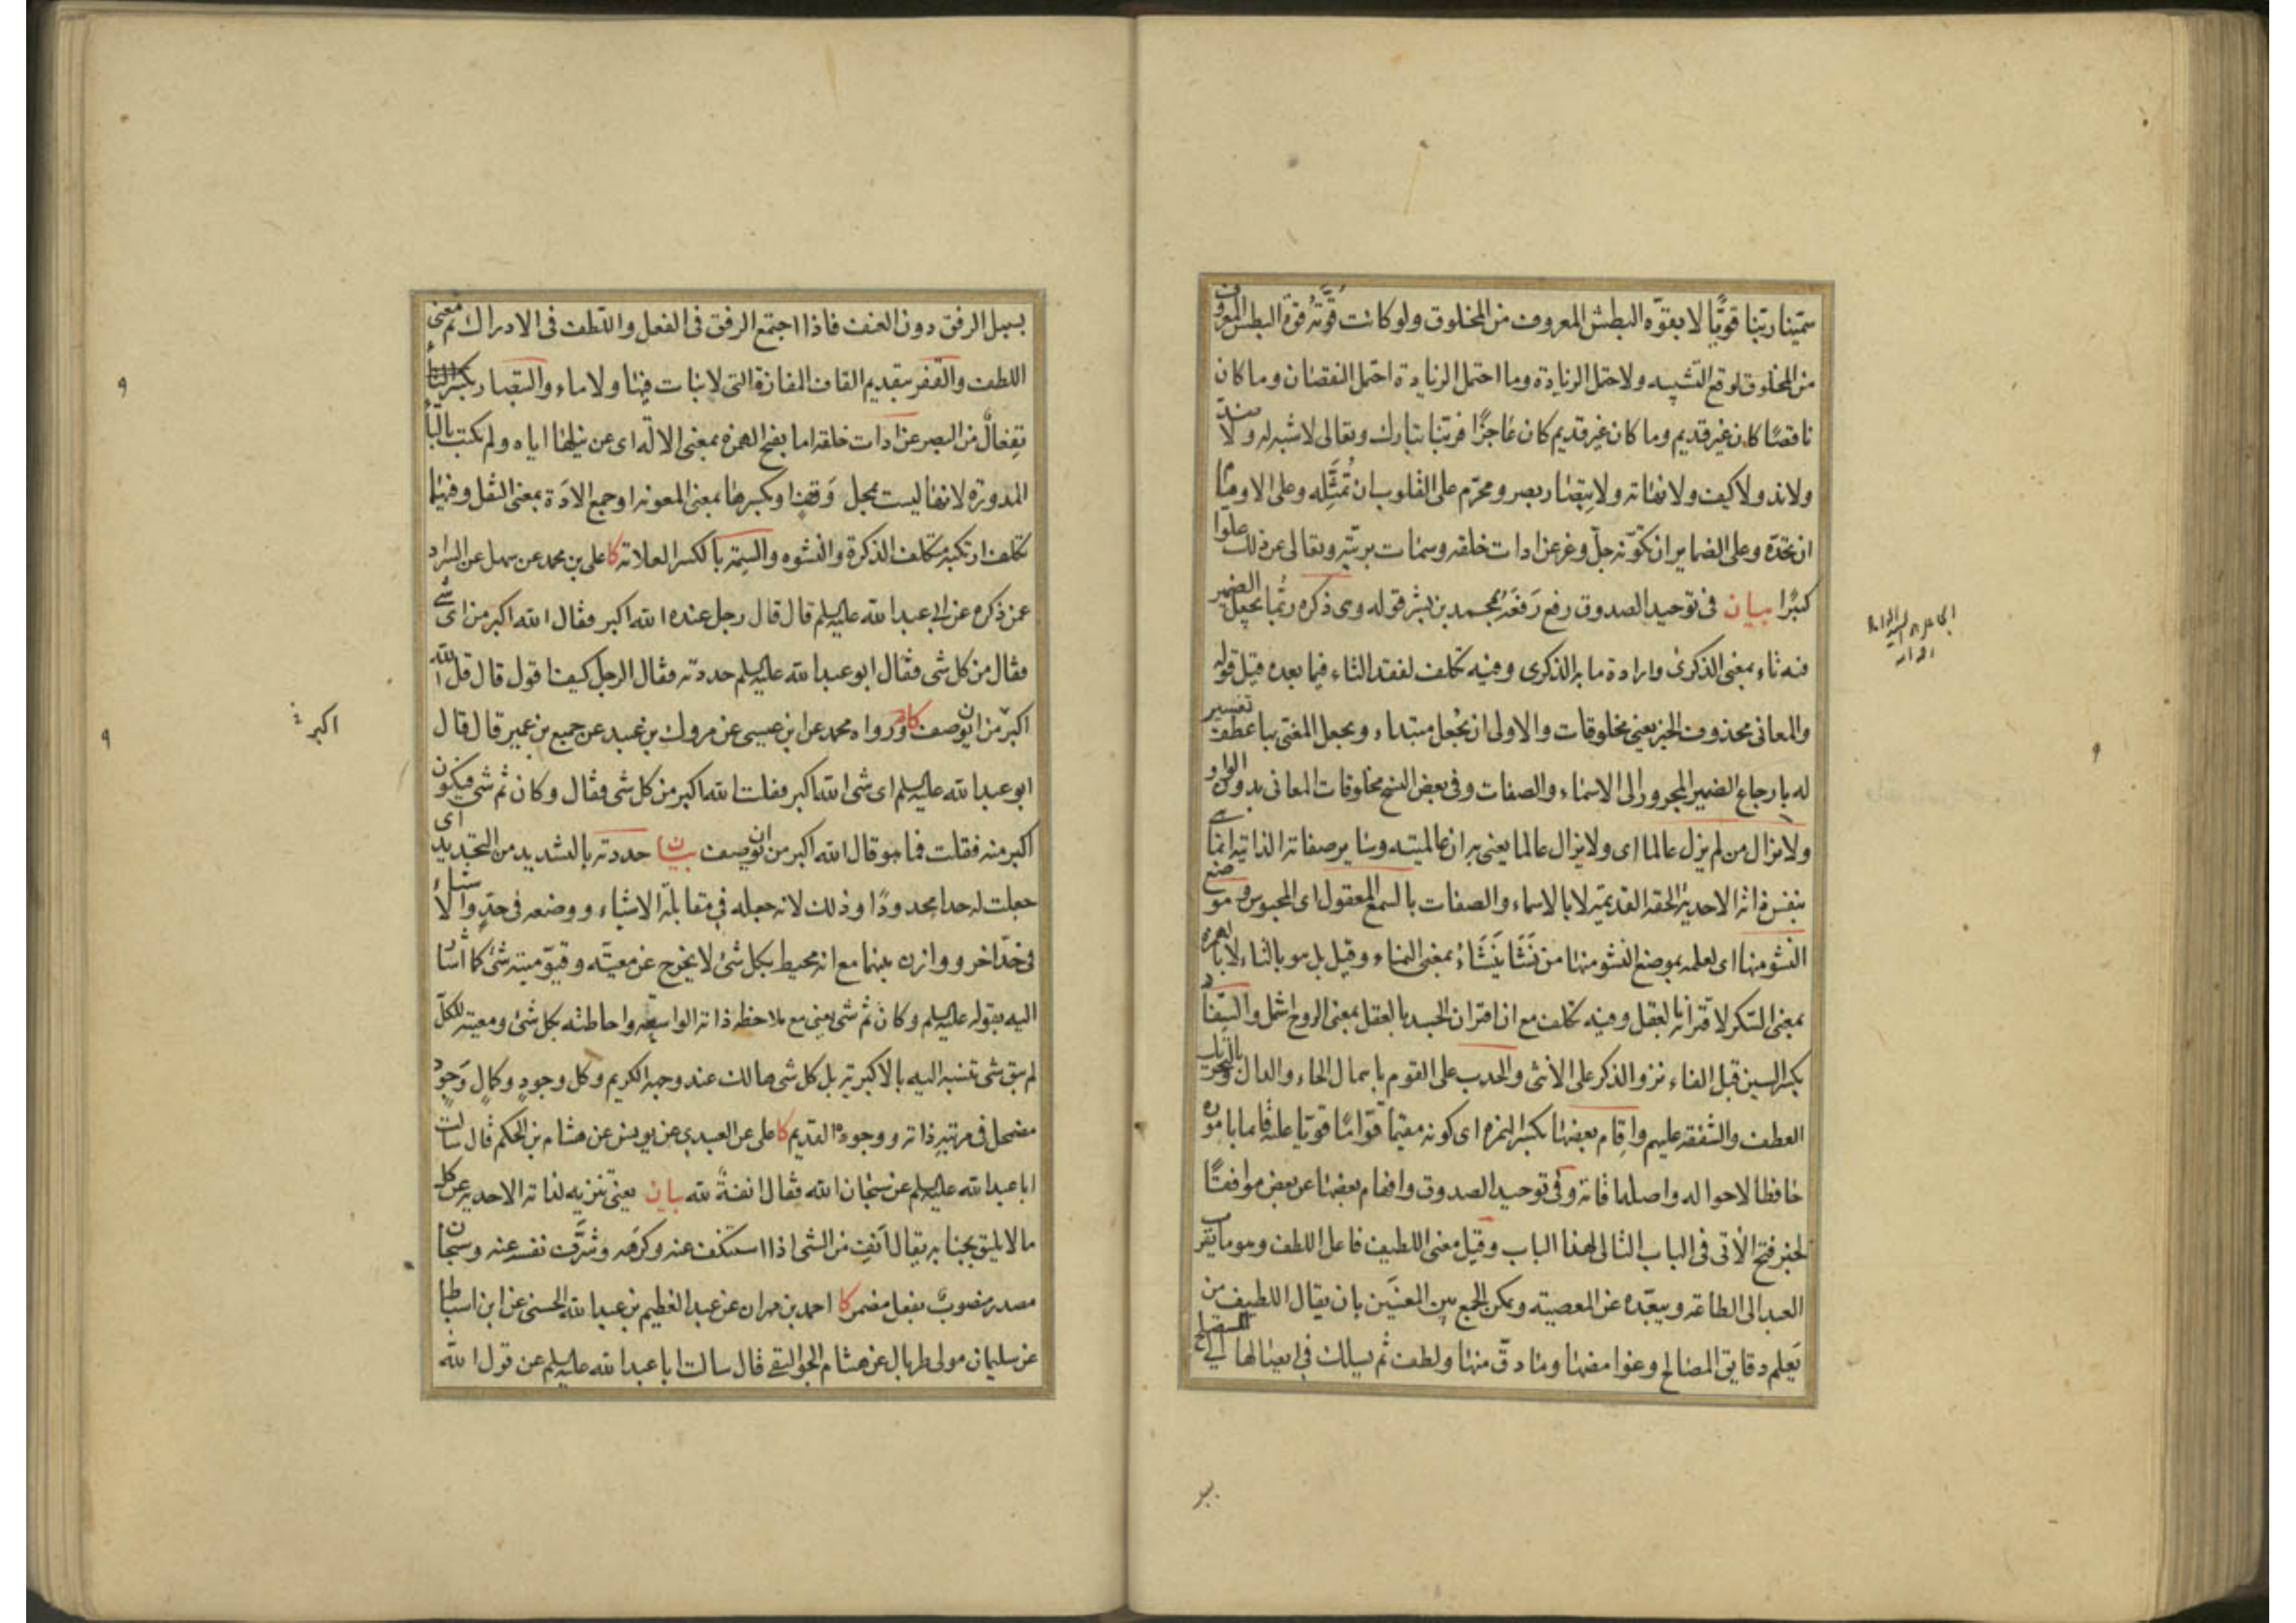 سمّينا ربّنا قويًّا لا بقوّه البطش المعروف من المخلوق ولو كانت قوّتُه قوّة البطش المعروف
من المخلوق لوقع التشبيه ولاحتمل الزيادة وما احتمل الزيادة احتمل النقصان وما كان
ناقصًا كان غير قديم وما كان غير قديم كان عاجزًا فربّنا تبارك وتعالى لا شبه له ولا ضدّ
ولا ند ولا كيف ولا نهاته ولا تبصار بصر ومحرّم على القلوب ان تُمثِّله وعلى الاوهام
ان تحدّه وعلى الضماير ان تكوّنه جلّ وعز عن ادات خلقه وسمات بريّته وتعالى عن ذلك علوا
كبيرًا بيان فى توحيد الصدوق رفع رَفَعَهُ بمحمد بن بشر قوله وى ذكره ربّما يجعل الضمير
فيه ثاء بمعنى الذكرى وارادة ما به الذكرى وفيه تكلف لفقد الثاء فيما بعده قيل قوله
والمعانى محذوف الخبر يعنى مخلوقات والاولى ان يُجعل مبتداء ويجعل المعنّى بها عطف تفسير
له بارجاع الضمير المجرور الى الاسماء والصفات وفى بعض النسخ مخلوقات المعانى بدون الواو
ولا نزال من لم يزل عالما اى ولا يزال عالما يعنى به ان عالميته وساير صفاته الذاتيه انما
بنفس ذاته الاحديّة الحقه القديمّة لا بالاسماء والصفات بالسمع المعقول اى المحبوس وموضع
النشو منها اى لعلمه بموضع النشو منها من نَشَا يَنشَاءُ بمعنى النماء وقيل بل هو بالثاء لا بالهمزة
بمعنى السّكر لاقترانه بالعقل وفيه تكلف مع ان اقتران الجسد بالعقل بمعنى الروح اشمل والسّفاد
بكسر السين قبل الفاء نزو الذكر على الأنثى والحدب على القوم باهمال الحاء والدال وبالتحريك
العطف والشفقه عليهم واقام بعضها بكسر الهمزه اى كونه مقيمًا قوّامًا قويّا عليه قايما باموره
حافظا لاحواله واصلها قاته وفى توحيد الصدوق وافهام بعضها عن بعض موافقًا
لخبر فتح الاتى فى الباب التالى لهذا الباب وقيل معنى اللطيف فاعل اللطف وهو ما يقرب
العبد الى الطاعه ويبعّده عن المعصيته ويمكن الجمع بين المعنيَين بان يقال اللطيف من
يَعلم دقايق المصالح وغوامضها وما دقّ منها ولطف ثم يسلك فى ايصالها الى المستصلح
بسبيل الرفق دون العنف فاذا اجتمع الرفق فى الفعل واللطف فى الادراك تم معنى
اللطف والقفر بتقديم القاف المفازة التى لا نبات فيها ولا ماء والتبصار بكسر التاء
تِفعالٌ من البصر عن ادات خلقه اما بفتح الهمزه بمعنى الالّه اى عن نيلها اياه ولم يكتب بالتاء
المدوّره لانها ليست بمحل وَقفٍ او بكسرها بمعنى المعونه او جمع الادَة بمعنى الثقل وفيهما
تكلف ارتكبه متكلف الذكرة والنشوه والسِّمة بالكسر العلامته كا على بن محمد عن سهل عن السراد
عمن ذكره عن ابى عبد الله عليه السلم قال قال رجل عنده الله اكبر فقال الله اكبر من اى شى
فقال من كل شى فقال ابو عبد الله عليه السلم حددته فقال الرجل كيف اقول قال قل الله
اكبر من ان يوصف كا ورواه محمد عن ابن عيسى عن مروك بن عبيد عن جميع بن عمير قال قال
ابو عبد الله عليه السلم اى شى الله اكبر فقلت الله اكبر من كل شى فقال وكان ثم شى فيكون
اكبر منه فقلت فما هو قال الله اكبر من ان يوصف بيان حددته بالتشديد من التحديد اى
جعلت له حدا محدودًا وذلك لانه جعله فى مقابلة الاشياء ووضعه فى حدّ والاشياء
فى حدّ اخر ووازن بينهما مع انه محيط بكل شئ لا يخرج عن معيّته وقيّوميّته شئ كما اشار
اليه بقوله عليه السلم وكان ثم شئ يعنى مع ملاحظه ذاته الواسعة واحاطته بكل شئ ومعيته للكلّ
لم يبق شى تنسبه اليه بالاكبريّة بل كل شى هالك عند وجهه الكريم وكل وجودٍ وكمالِ وجودٍ
مضمحل فى مرتبةِ ذاته ووجوده القديم كا على عن العبيدى عن يونس عن هشام بن الحكم قال سالت
ابا عبد الله عليه السلم عن سبحان الله فقال انفةٌ لله بيان يعنى تنزيه لذاته الاحدية عن كل
ما لا يليق بجنابه يقال اَنِفَ من الشئ اذا استنكف عنه وكرَهه وشَرَّفَ نفسه عنه وسبحان
مصدر منصوبٌ بفعل مضمر كا احمد بن مهران عن عبد العظيم بن عبد الله الحسنى عن ابن اسباط
عن سليمان مولى طربال عن هشام الجواليقى قال سالت ابا عبد الله عليه السلم عن قول الله
اكبر